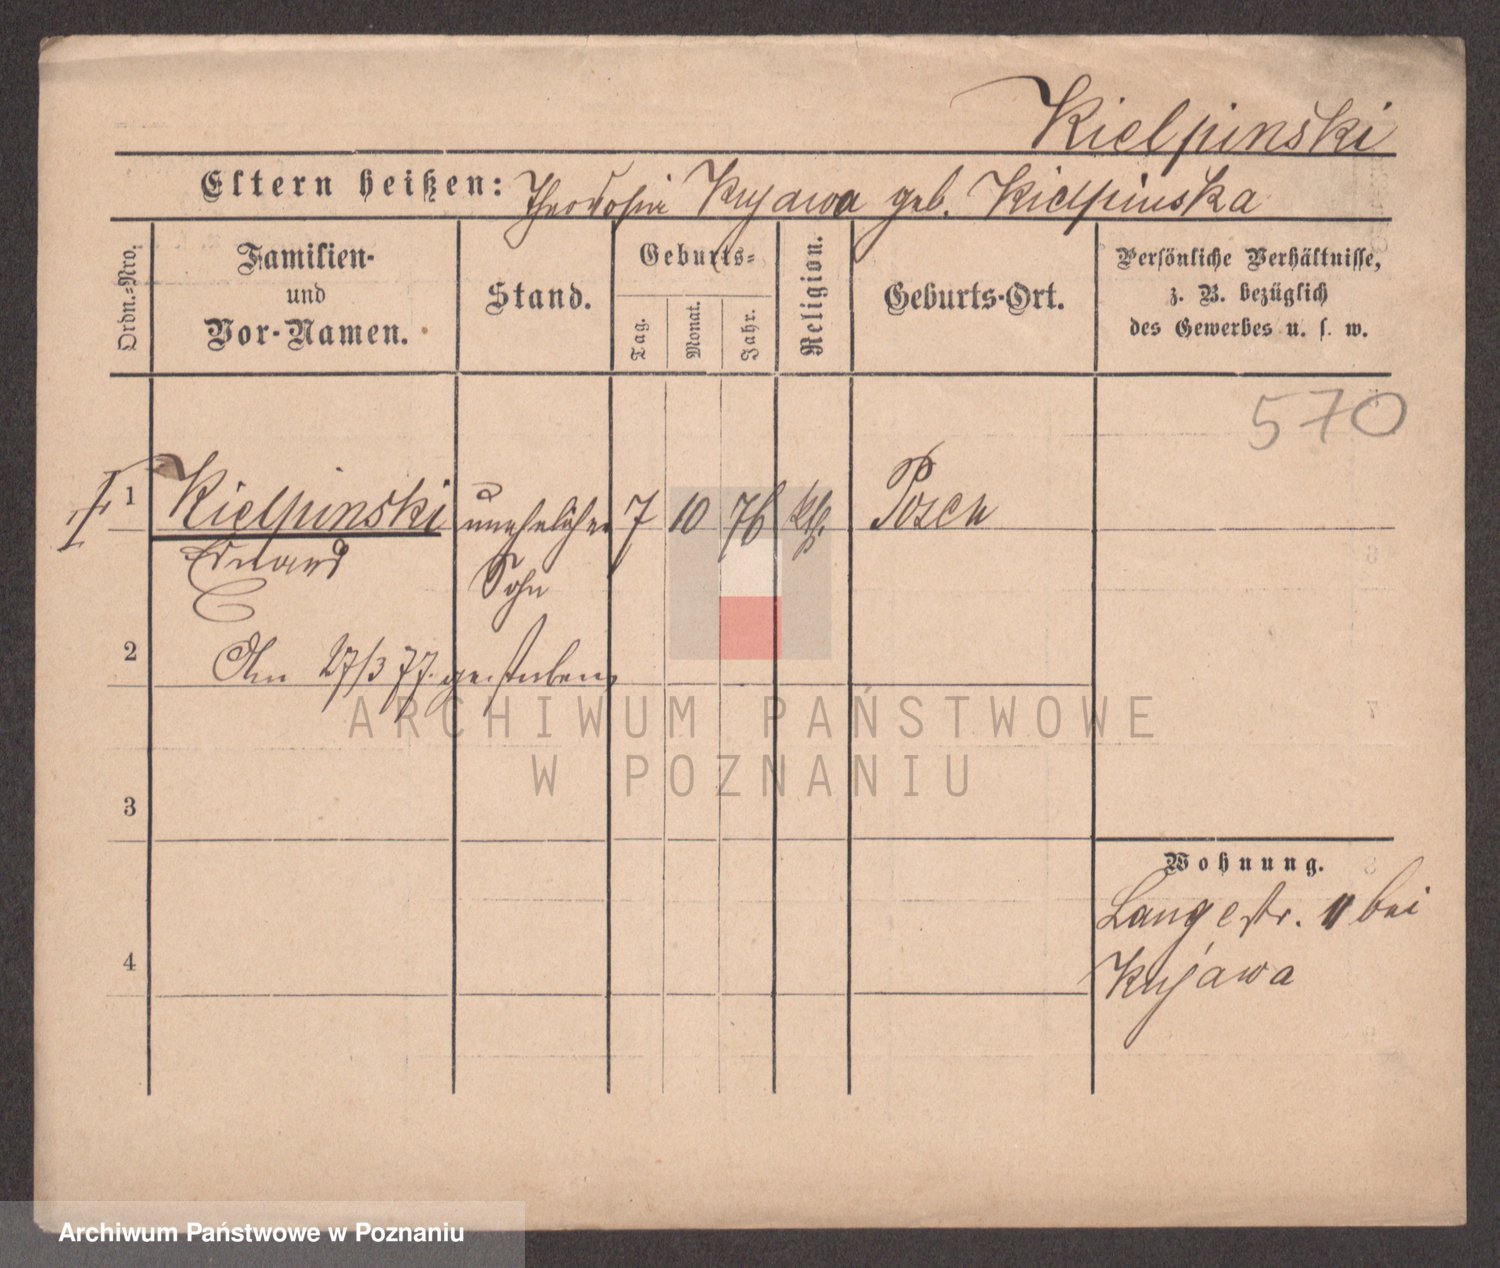 Kielpinski
Eltern heißen: Theodosia Kujawa geb. Kielpinska
Ordn.-Nro.
Familien-
und
Vor-Namen.
Stand.
Geburts-
Tag.
Monat.
Jahr.
Religion.
Geburts-Ort.
Persönliche Verhältnisse,
z. B. bezüglich
des Gewerbes u. s. w.
570
1 Kielpinski unehelicher 7 10 76 kth. Posen
Eduard Sohn
2 Am 27/3 77. gestorben
ARCHIWUM PAŃSTWOWE
W POZNANIU
3
Wohnung.
Langestr. 11 bei
4 Kujawa
Archiwum Państwowe w Poznaniu